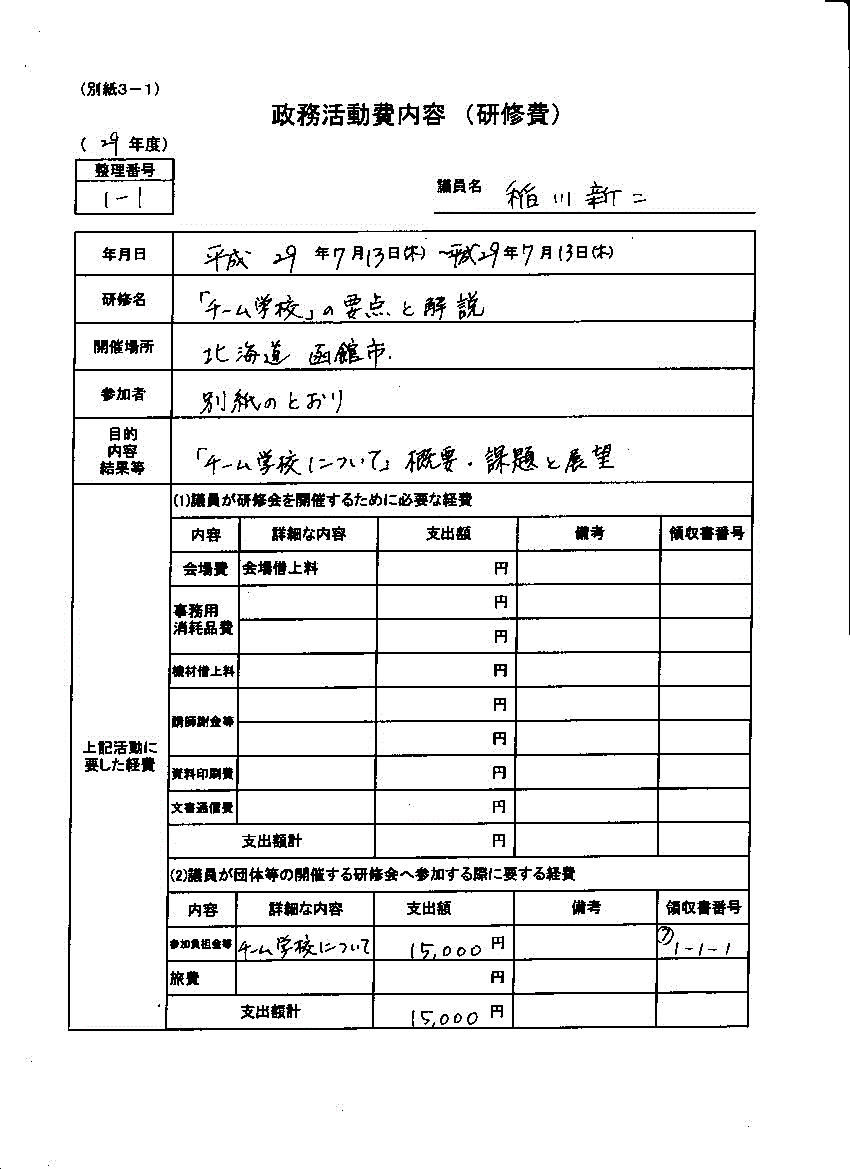 （別紙３－１）
政務活動費内容（研修費）
（ 29 年度）
整理番号
1-1
議員名 稲川新二
年月日 平成 29 年7月13日(木)～平成29年7月13日(木)
研修名 「チーム学校」の要点と解説
開催場所 北海道 函館市.
参加者 別紙のとおり
目的
内容
結果等 「チーム学校について」概要・課題と展望
上記活動に
要した経費
(1)議員が研修会を開催するために必要な経費
内容 詳細な内容 支出額 備考 領収書番号
会場費 会場借上料 円
事務用
消耗品費 円
円
機材借上料 円
講師謝金等 円
円
資料印刷費 円
文書通信費 円
支出額計 円
(2)議員が団体等の開催する研修会へ参加する際に要する経費
内容 詳細な内容 支出額 備考 領収書番号
参加負担金等 チーム学校について 15,000 円 1-1-1
旅費 円
支出額計 15,000 円